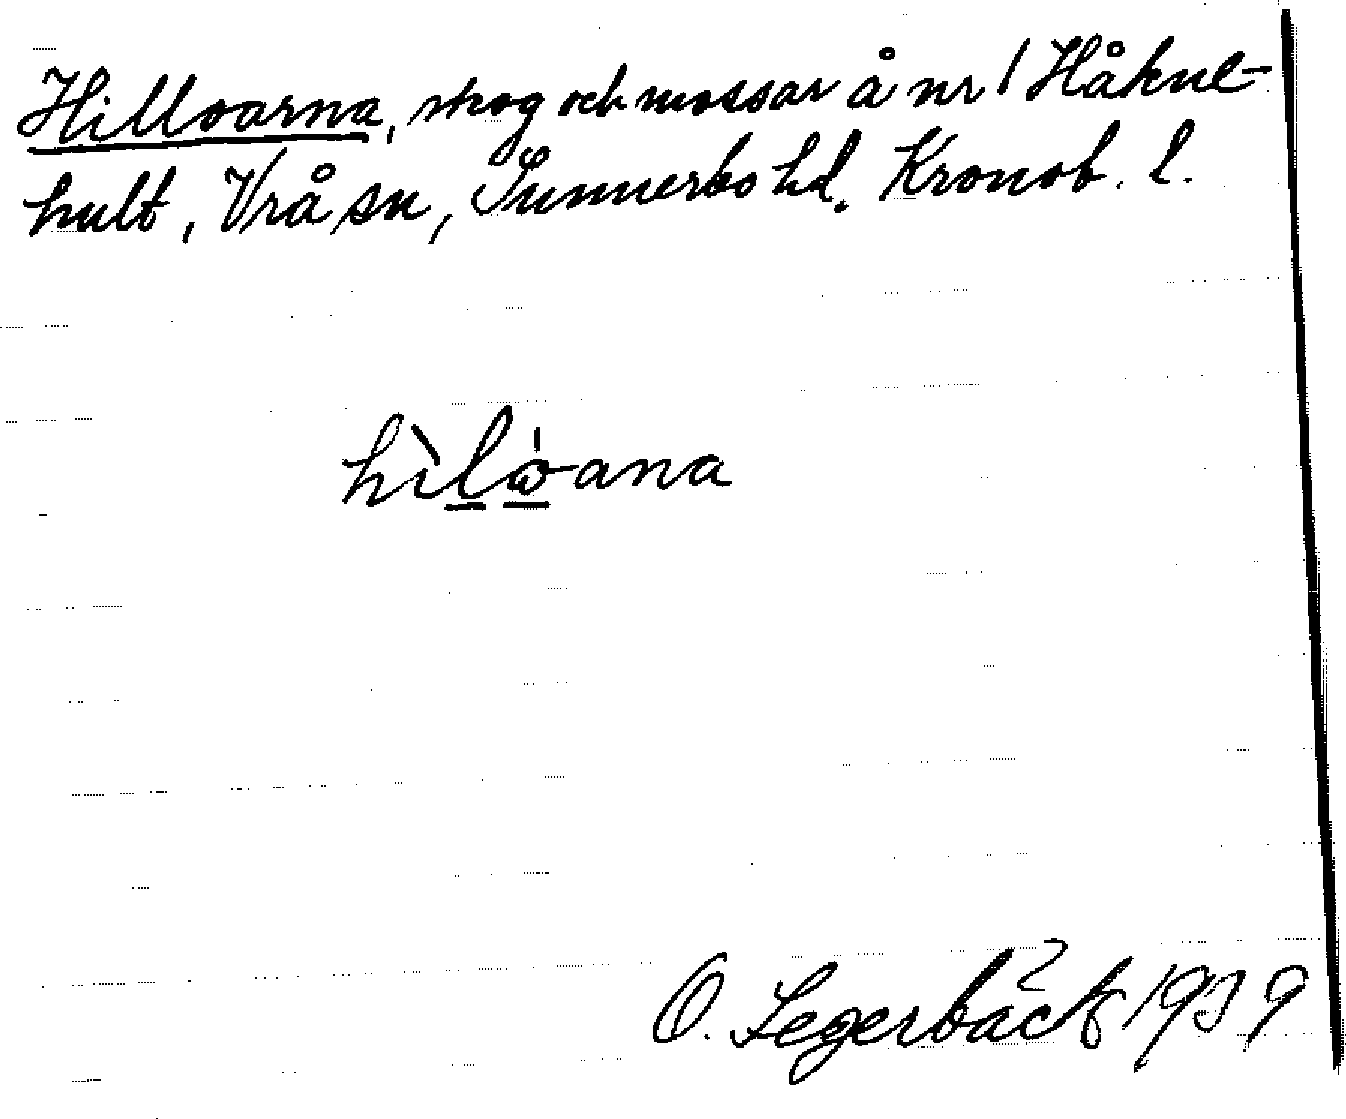 Hilloarna, skog och mossar å nr 1 Håkne-
hult, Vrå sn, Sunnerbo hd. Kronob. l.
hìlὼana
O. Segerbäck 1939